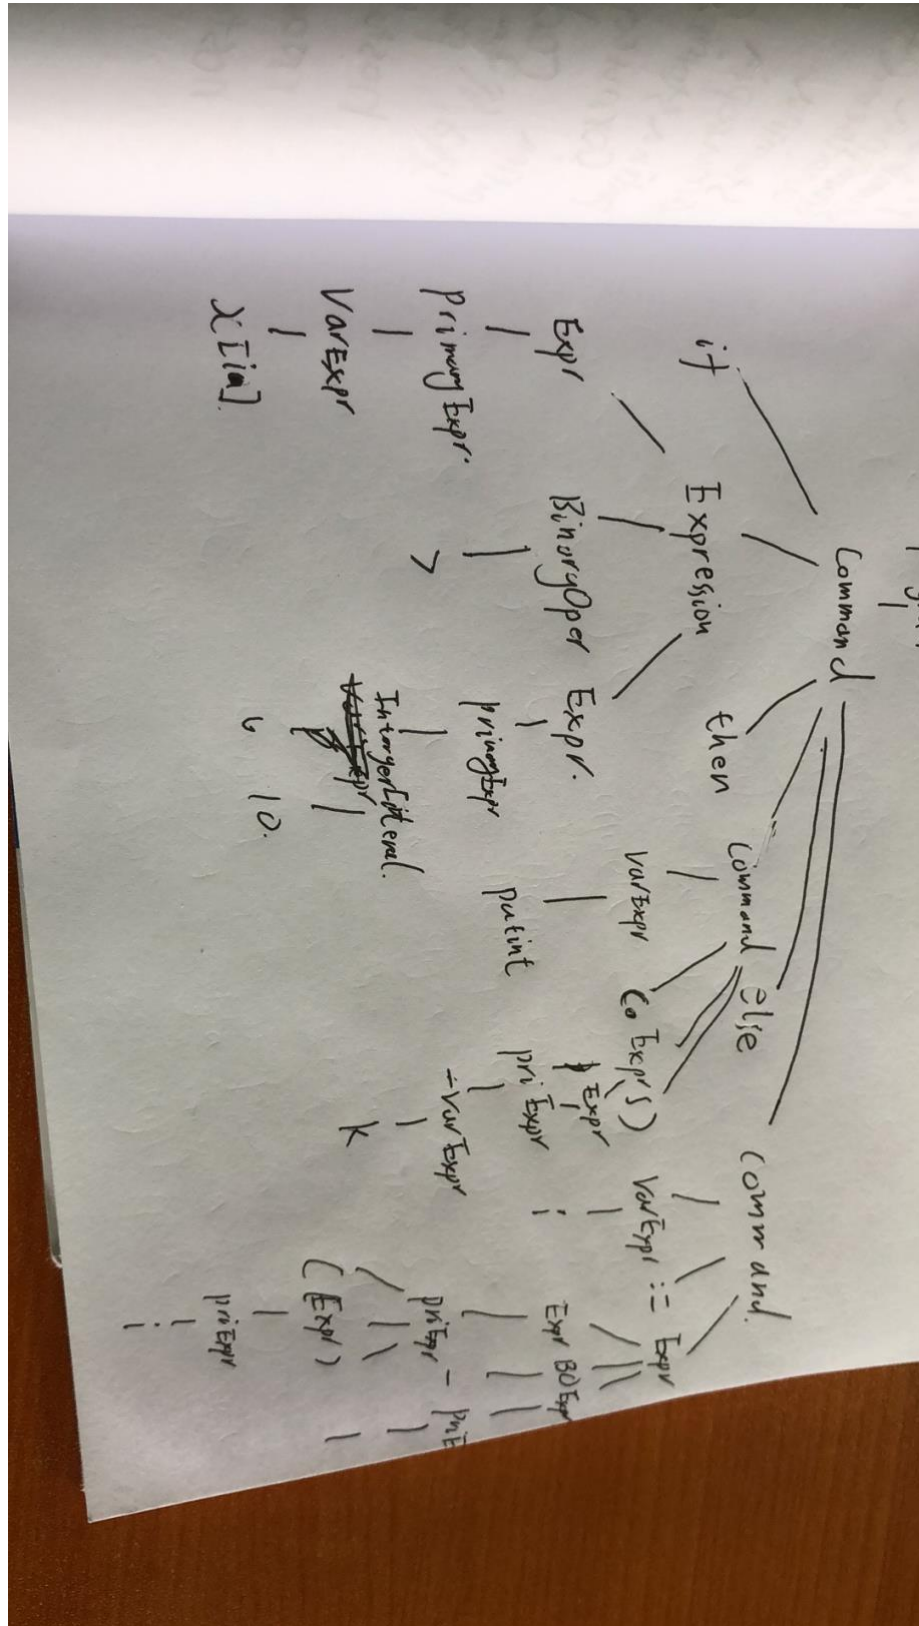 Command
if Expression then Command else Command.
Expr BinaryOper Expr. VarExpr ( Expr ) VarExpr := Expr
PrimaryExpr. > primaryExpr putint Expr i Expr BO Expr
VarExpr IntergerLiteral. priExpr priExpr -
x[ia]. 10. VarExpr ( Expr )
k priExpr
i